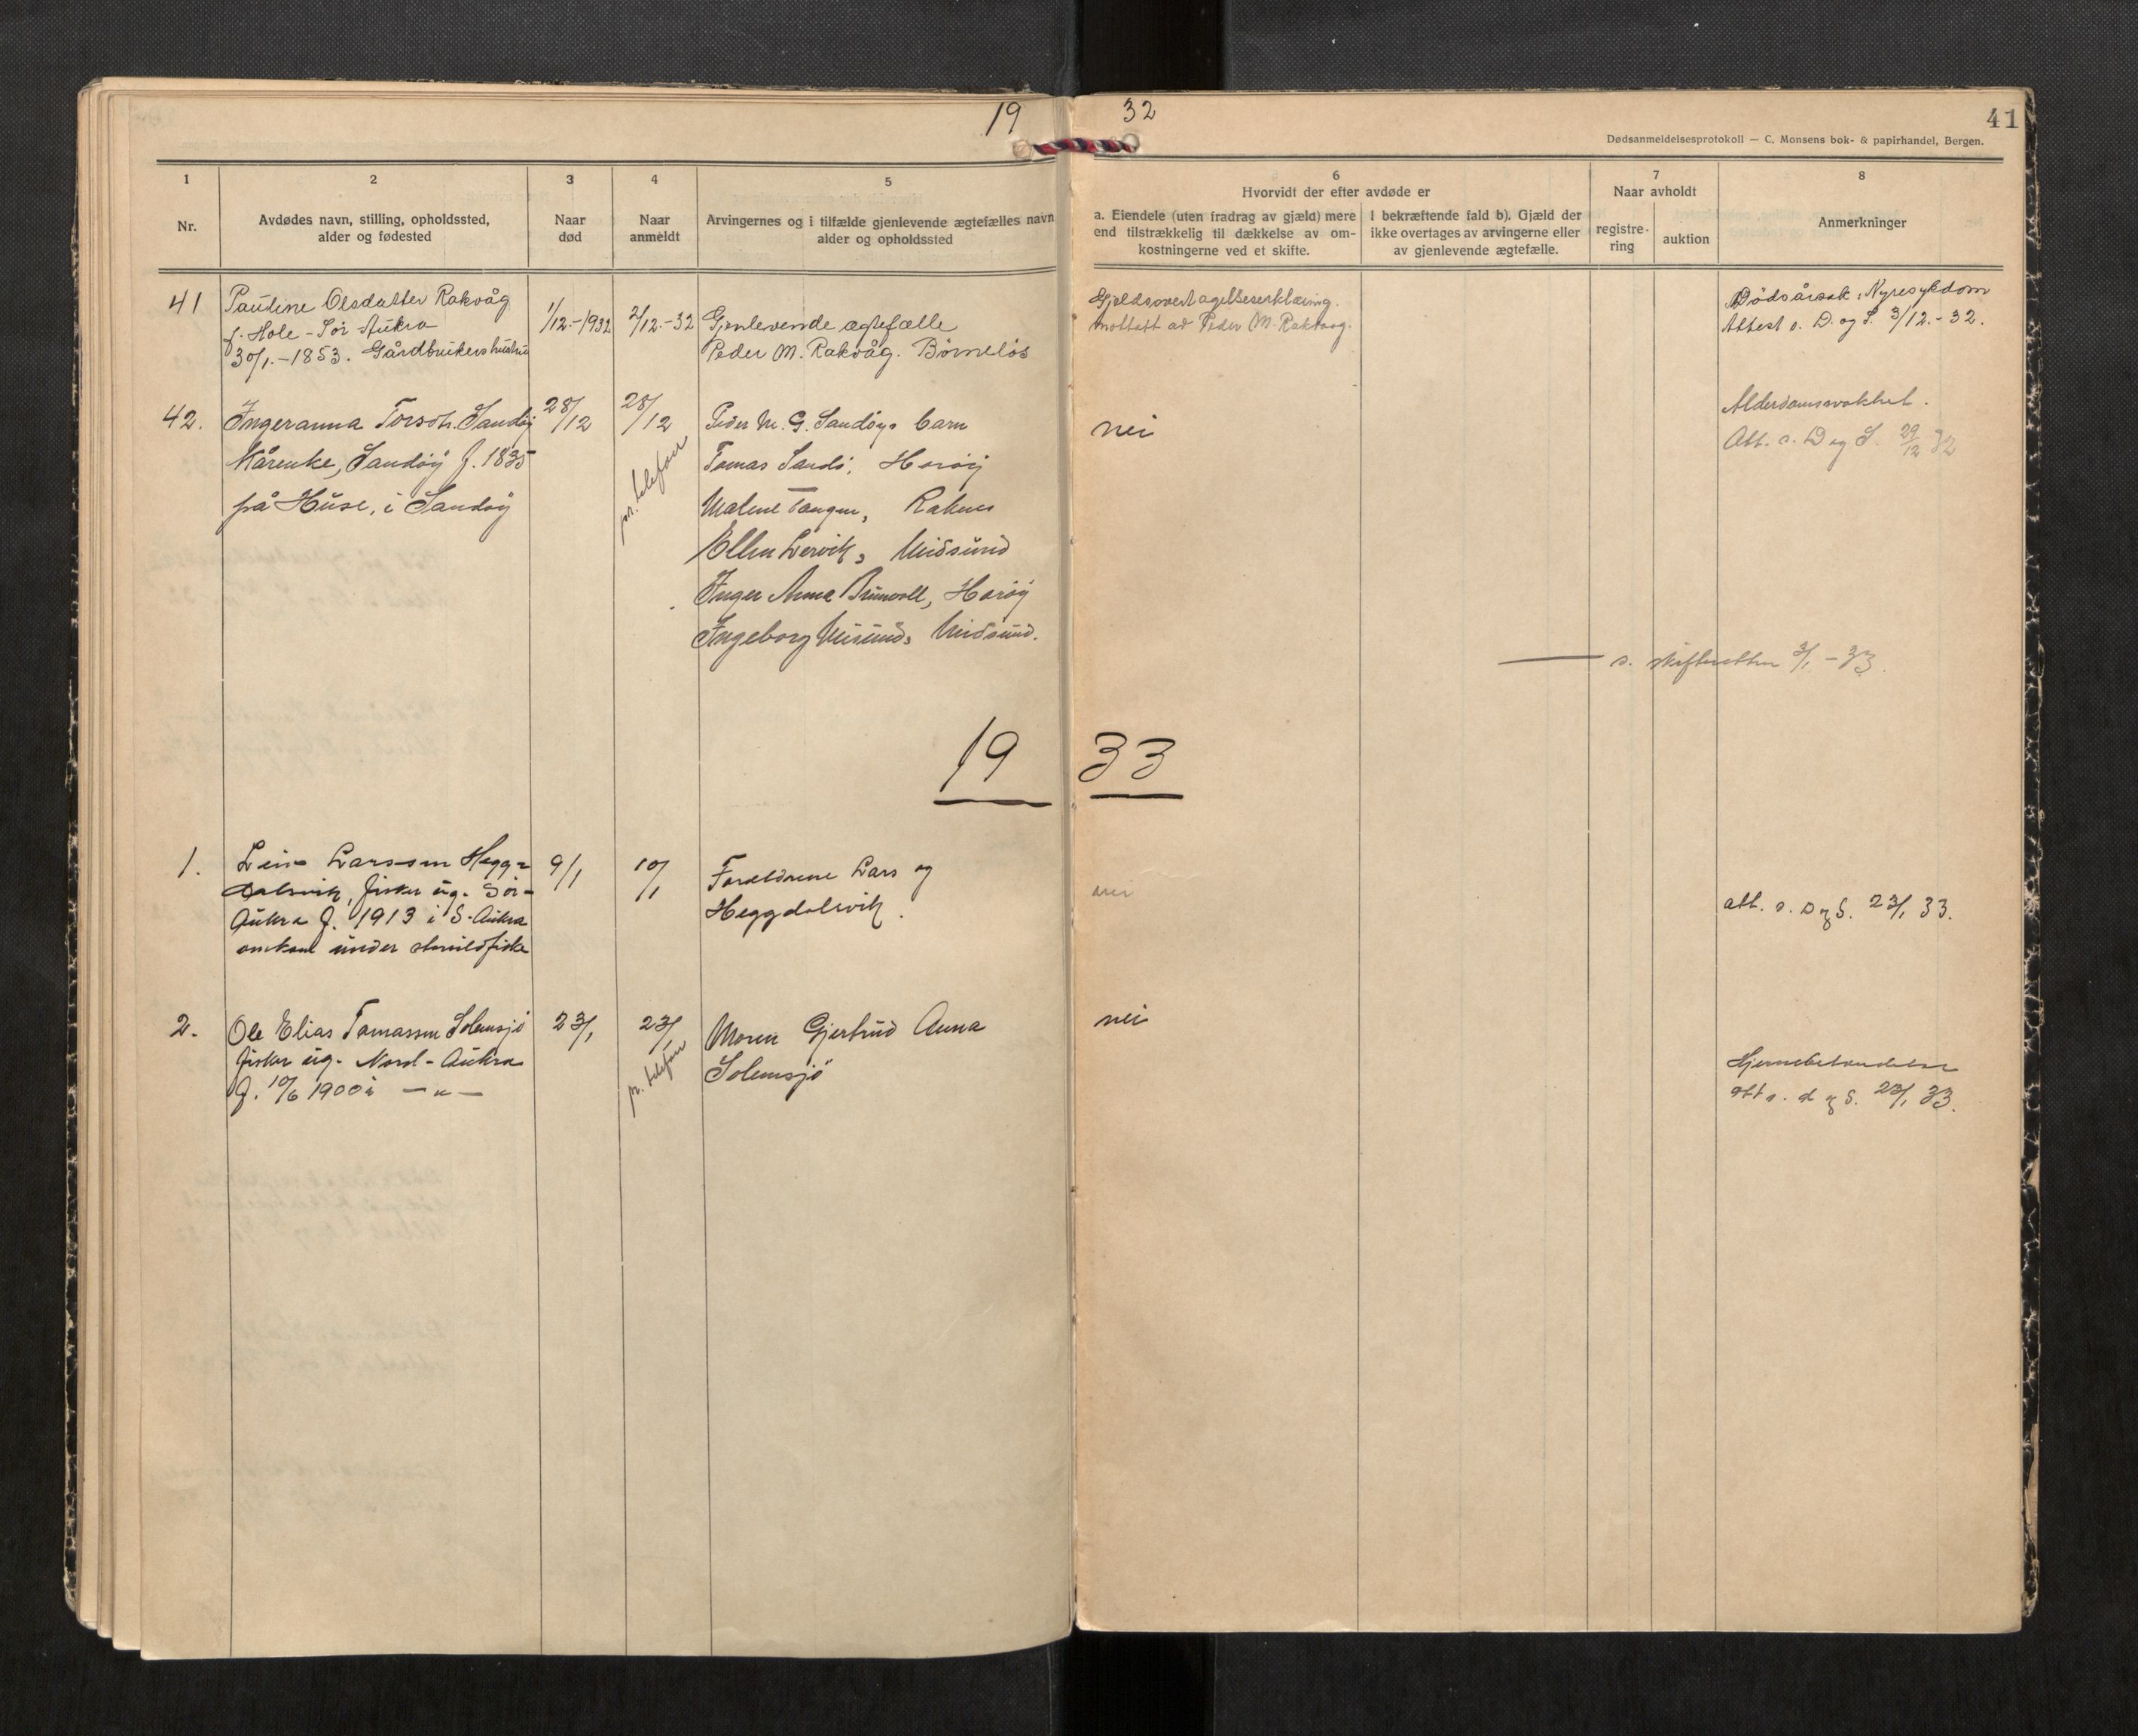 19
32
41
Dødsanmeldelsesprotokoll — C. Monsens bok- & papirhandel, Bergen.
1
Nr.
2
Avdødes navn, stilling, opholdssted,
alder og fødested
3
Naar
død
4
Naar
anmeldt
5
Arvingernes og i tilfælde gjenlevende ægtefælles navn
alder og opholdssted
6
Hvorvidt der efter avdøde er
a. Eiendele (uten fradrag av gjæld) mere
end tilstrækkelig til dækkelse av om-
kostningerne ved et skifte.
I bekræftende fald b). Gjæld der
ikke overtages av arvingerne eller
av gjenlevende ægtefælle.
7
Naar avholdt
registre-
ring
auktion
8
Anmerkninger
41
Pauline Olsdatter Rakvåg
f. Hole - Sør Aukra
30/1.-1853. Gårdbrukers hustru
1/12.-1932
2/12.-32
Gjenlevende ægtefælle
Peder M. Rakvåg. Börnelös
Gjeldsovertagelseserklæring
mottatt ad Peder M. Rakvaag.
Dödsårsak: Nyresykdom
Attest s. D. og S. 3/12.-32.
42.
Ingeranna Torsdtr. Sandöy
Kårenke, Sandöy f. 1835
på Huse, i Sandöy
28/12
28/12
pr. telefon
Peder M. G. Sandöys barn
Tomas Sandö, Haröy
Malene Tangen, Raknes
Ellen Lervik, Midsund
Inger Anna Brunvoll, Haröy
Ingeborg Misund, Midsund.
nei
Alderdomssvakhet.
Att. s. D og S. 29/12 32
— s. skifteretten 3/1 - 33.
19 33
1.
Larssen Hegg-
dalsvik, fisker ug. Sör-
Aukra f. 1913 i S. Aukra
omkom under storsildfiske
9/1
10/1
Foreldrene Lars og
Heggdalsvik.
nei
att. s. D og S. 23/1 33.
2.
Ole Elias Tomassen Solemsjö
fisker ug. Nord-Aukra
f. 10/6 1900 i — " —
23/1
23/1
pr. telefon
Moren Gjertrud Anna
Solemsjö
nei
Hjernebetendelse
att s. d og S. 23/1 33.